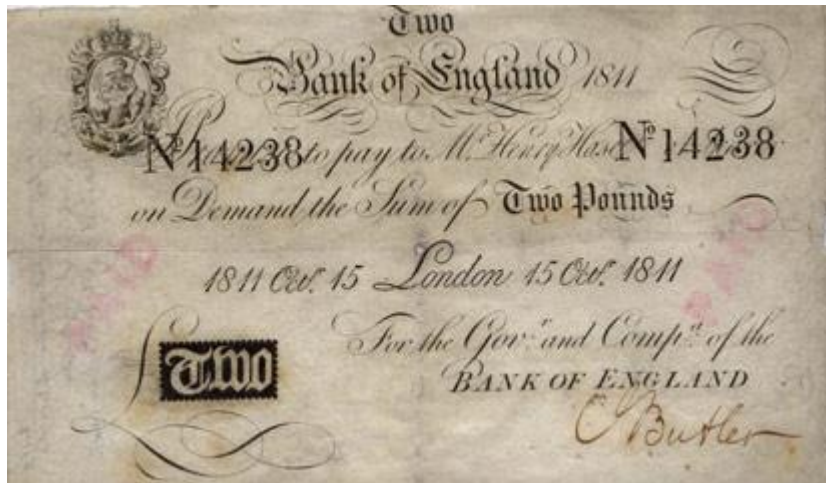 Two
Bank of England 1811
Nº14238 to pay to Mr. Henry Hase Nº14238
on Demand the Sum of Two Pounds
1811 Oct. 15 London 15 Oct. 1811
For the Govr. and Compa. of the
£ Two
BANK OF ENGLAND
C Butler
PAID
PAID